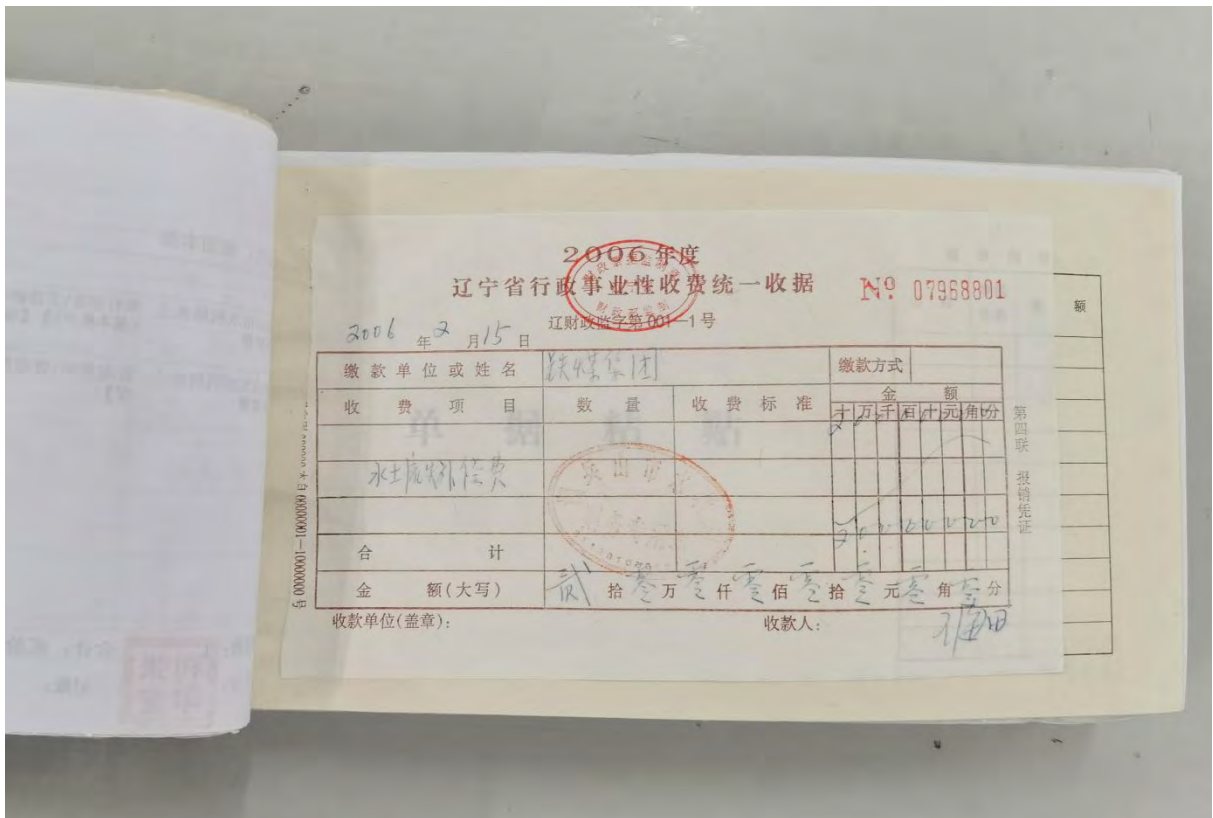 2006年度
辽宁省行政事业性收费统一收据
№ 07968801
辽财政监字第001—1号
2006年2月15日
缴款单位或姓名 铁煤集团 缴款方式
收费项目 数量 收费标准 金额
十万千百十元角分
单据粘贴
水土流失补偿费
合计
金额(大写) 贰拾零万零仟零佰零拾零元零角零分
收款单位(盖章): 收款人:
第四联 报销凭证
额